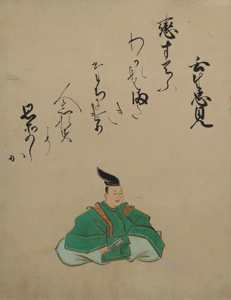 壬生忠見
恋すてふ
わか名はまた
き
たちにけり
人しれす
こそ
思ひそめし
か